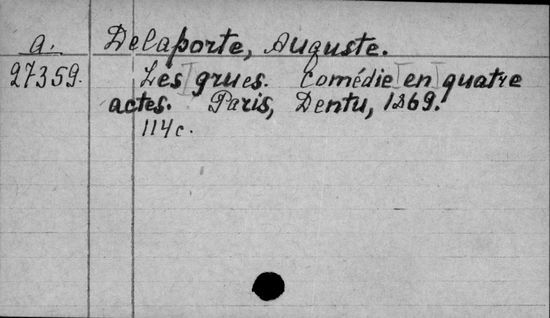 a. Delaporte, Auguste.
27359. Les grues. Comédie en quatre
actes. Paris, Dentu, 1869.
114 c.